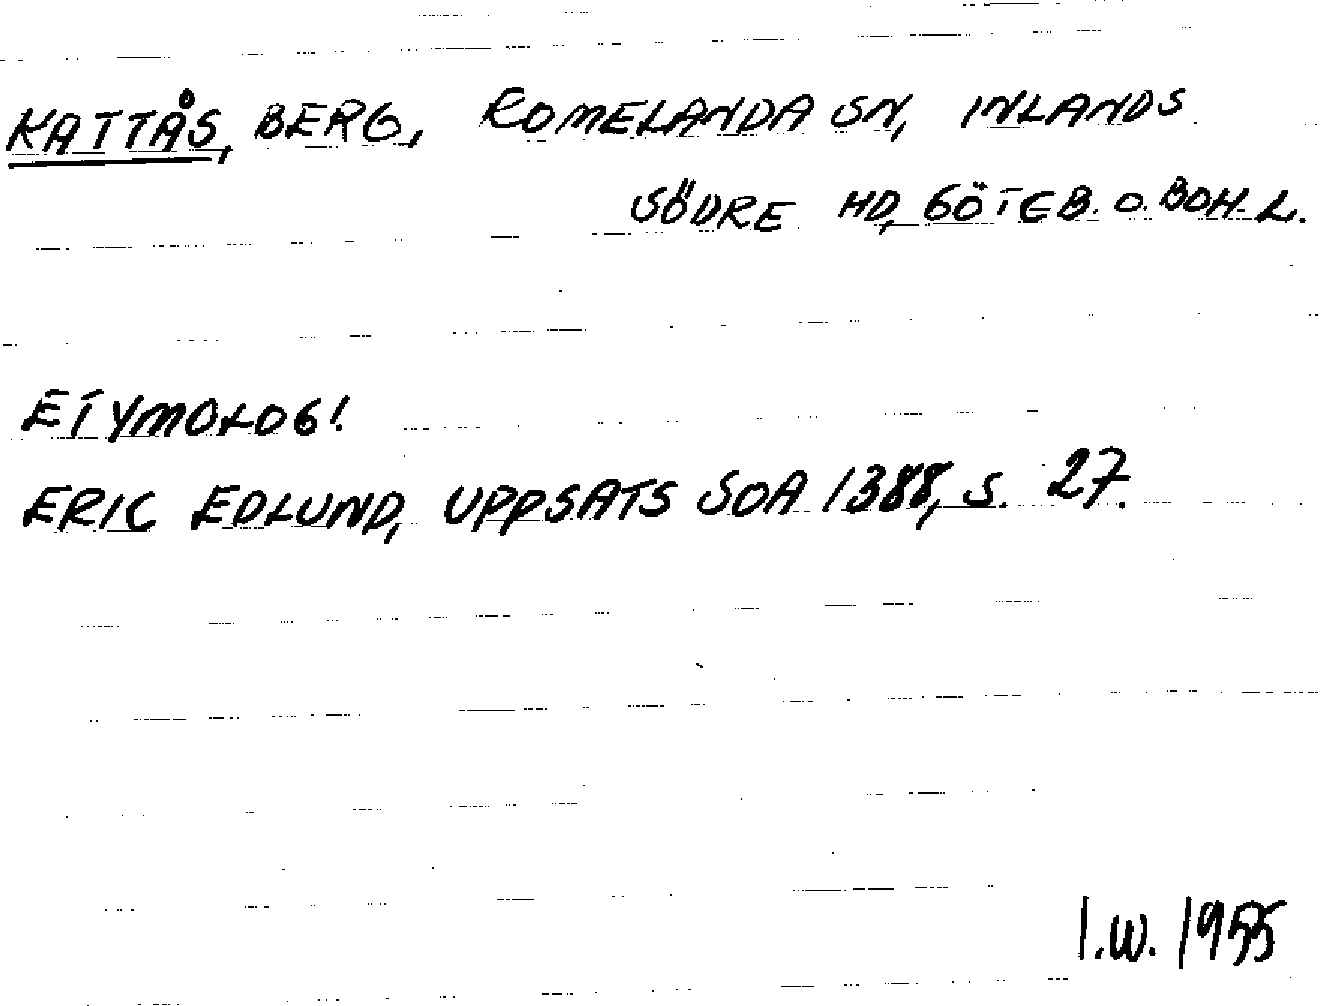 KATTÅS, BERG, ROMELANDA SN, INLANDS
SÖDRE HD, GÖTEB. O. BOH. L.
ETYMOLOGI.
ERIC EDLUND, UPPSATS SOA 1388, S. 27.
I.W. 1955